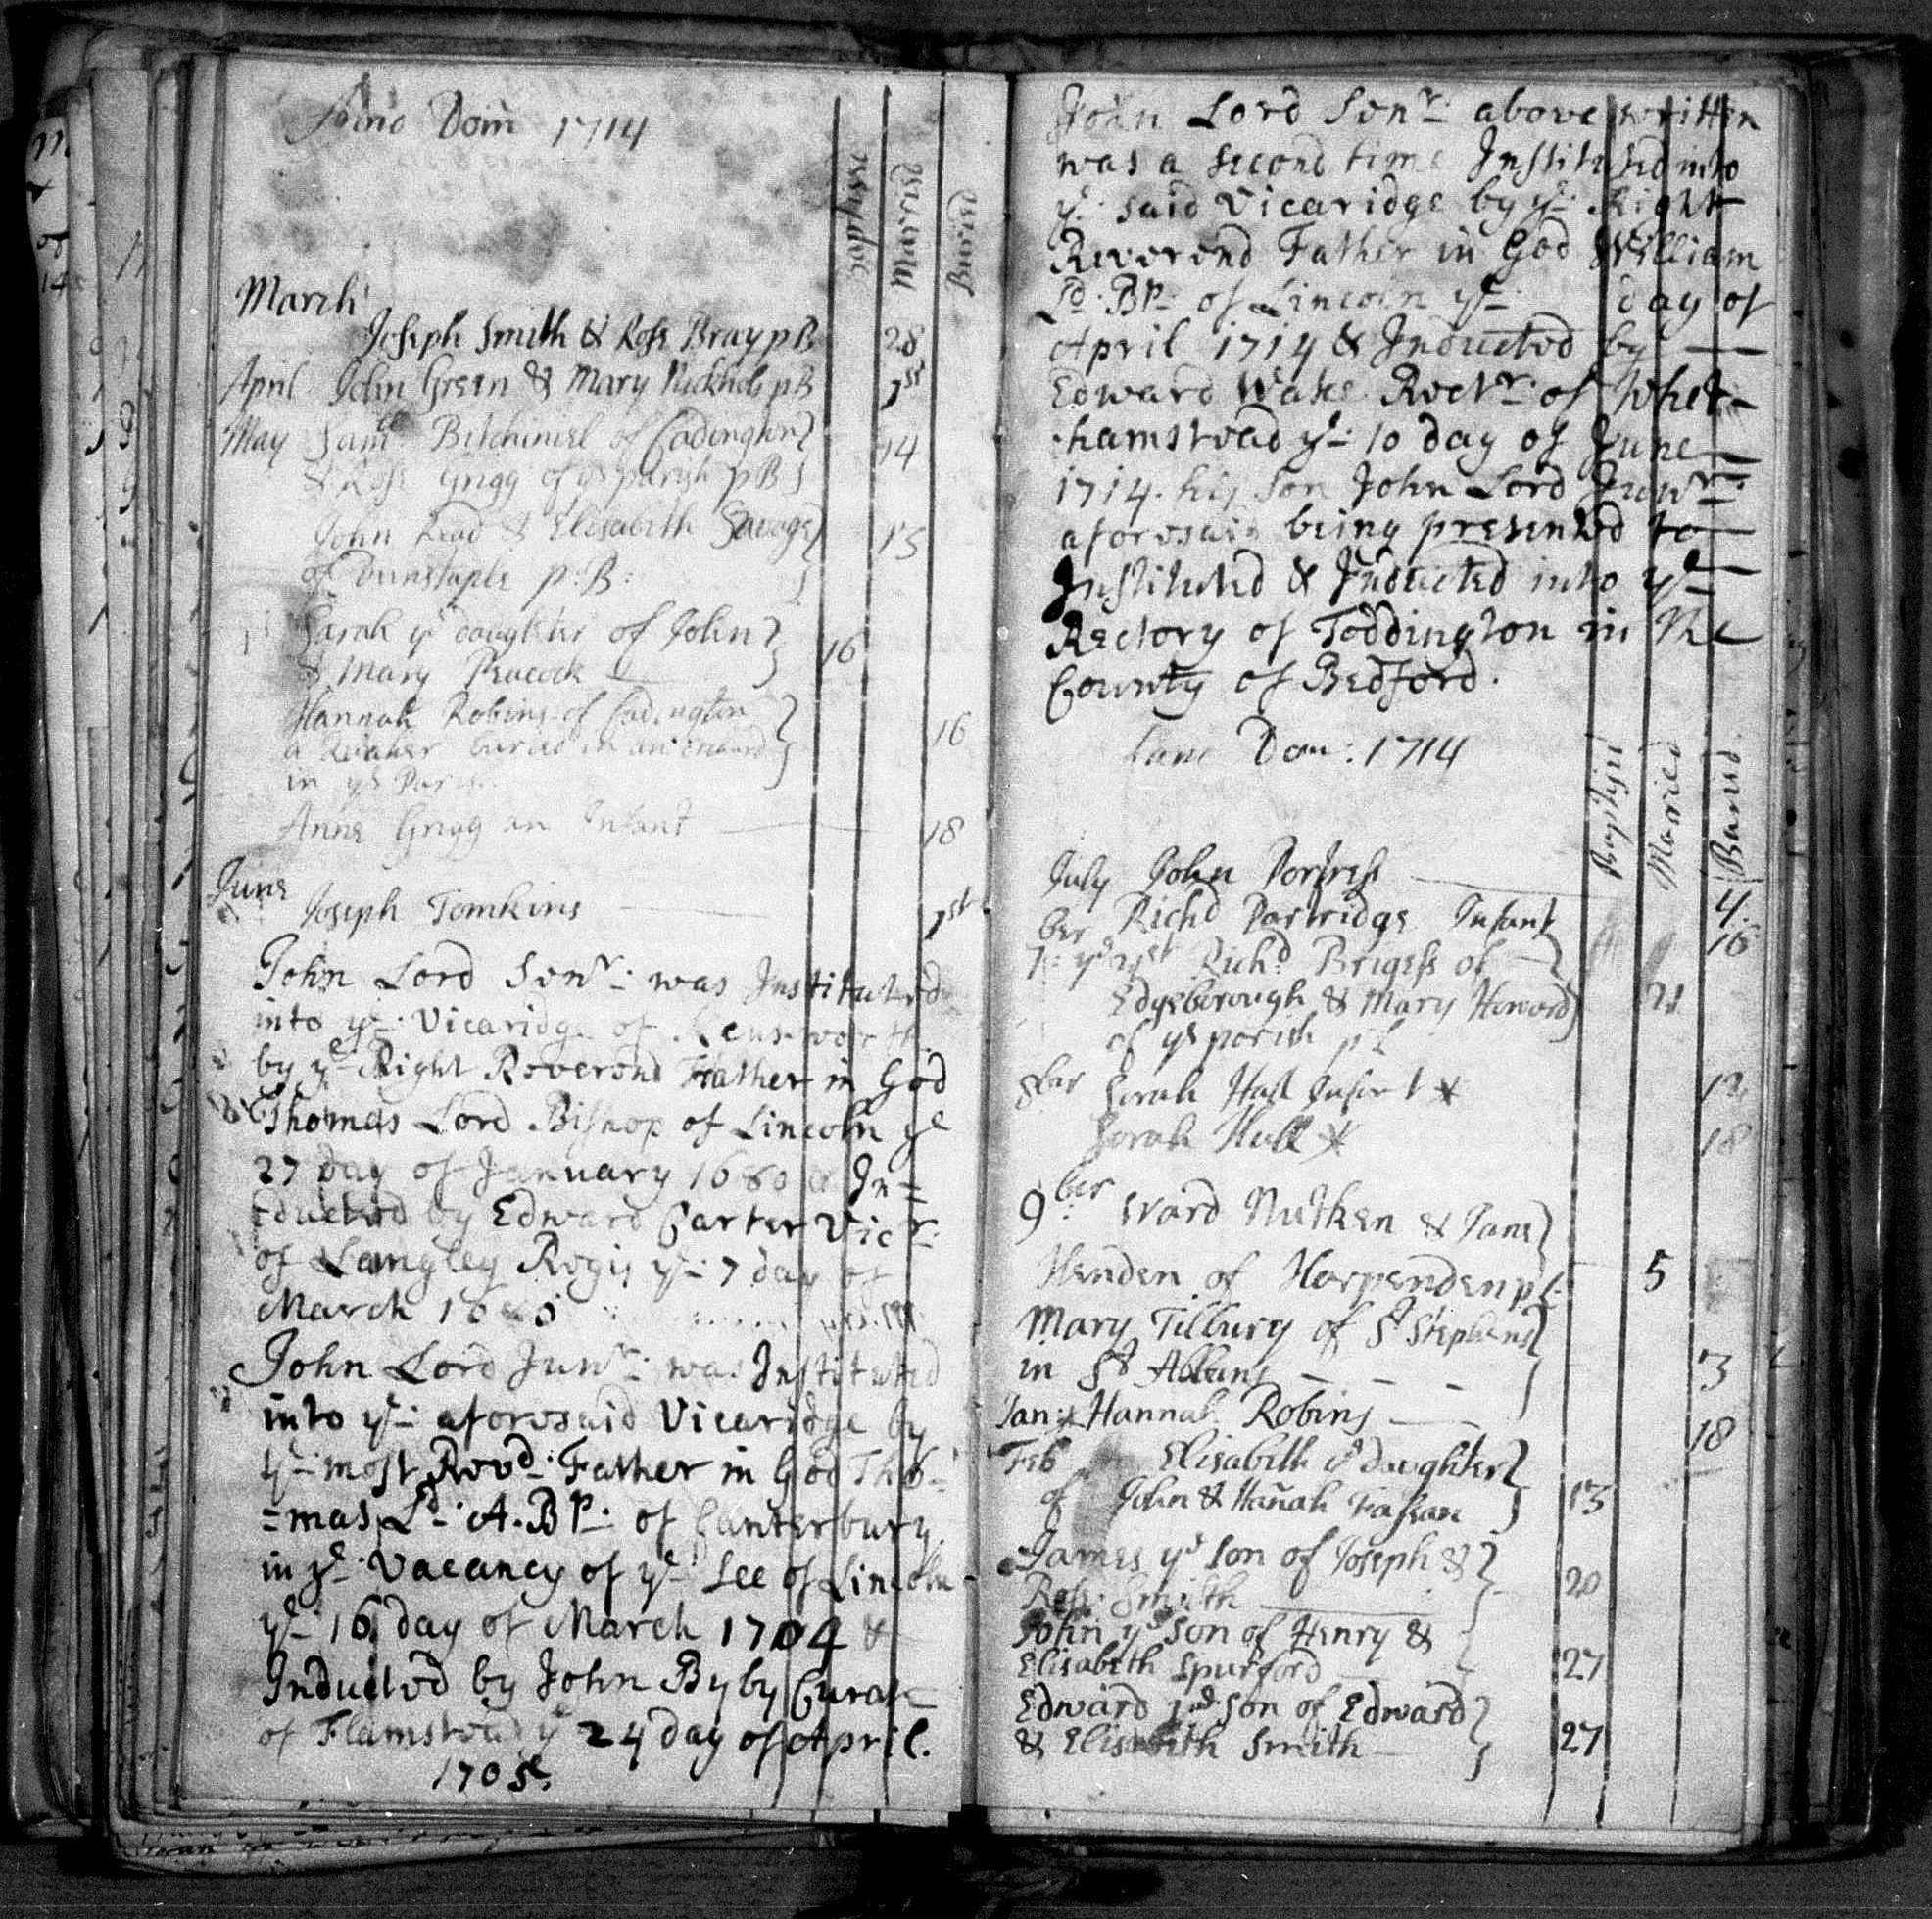 Anno Dom 1714
Baptized
Married
Buried
March
Joseph Smith & Rose Bray pB 28
April John Green & Mary Nickhols pB 1st
May Saml Bitchiner of Cadington
& Rose Grigg of ys parish pB 14
John Read & Elisabeth Savage
of Dunstaple p:B: 15
Sarah ye daughter of John
& Mary Peacock 16
Hannah Robins of Cadington
a Quaker buried in an orchard
in ys Parish 16
Anne Grigg an Infant 18
June
Joseph Tomkins 1st
John Lord Senr: was Instituted
into ye: Vicaridge of Kensworth
by ye Right Reverend Father in God
Thomas Lord Bishop of Lincoln ye
27 day of January 1680 & In=
=ducted by Edward Carter Vicr:
of Langley Regis ye: 7 day of
March 1680
John Lord Junr: was Instituted
into ye: aforesaid Vicaridge by
ye most Revd: Father in God Tho=
=mas Ld: A.BP: of Canterbury
in ye: Vacancy of ye See of Lincoln
ye 16 day of March 1704 &
Inducted by John Byby Curate
of Flamstead ye 24 day of April.
1705.
John Lord Senr: above written
was a second time Instituted into
ye: said Vicaridge by ye: Right
Reverend Father in God William
Ld: BP: of Lincoln ye: day of
April 1714 & Inducted by
Edward Wake Rectr: of Whet=
hamstead ye: 10 day of June
1714. his Son John Lord Junr:
aforesaid being presented to
Instituted & Inducted into ye
Rectory of Toddington in the
County of Bedford.
Dom: 1714
Baptized
Married
Buried
July John 4.
Richd Partridge Infant 16
7ber ye 21st Richd Brigess of
Edgeborough & Mary Howord 21
of ys parish pL
8ber Sarah Hall Infant * 12
Sarah Hull * 18
9ber Ward Nutken & Jane
Henden of Harpenden pL: 5
Mary Tilbury of St Stephens
in St Albans - - - 3
Jan: * Hannah Robins 18
Feb Elisabeth ye Daughter
of John & Hanah 13
James ye son of Joseph &
Rose Smith 20
John ye son of Henry &
Elisabeth Spufford 27
Edward ye son of Edward
& Elisabeth Smith 27